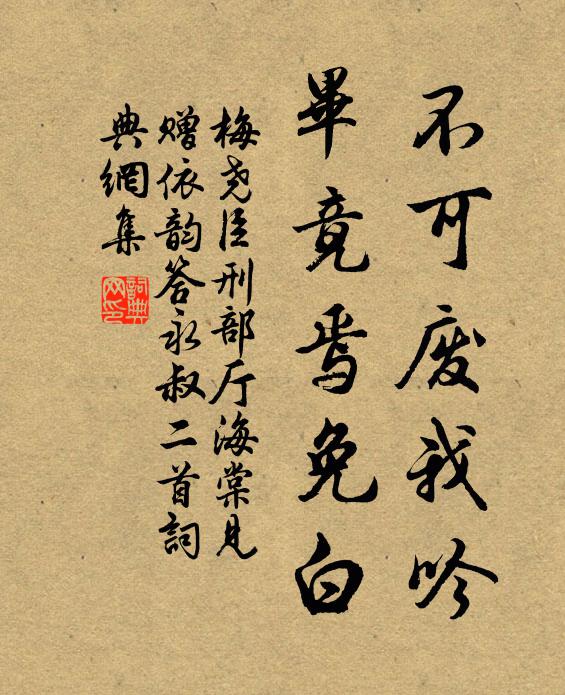 不可废我吟
畢竟焉免白
梅尧臣刑部厅海棠見
赠依韵答永叔二首詞
典網集
詞典
网印